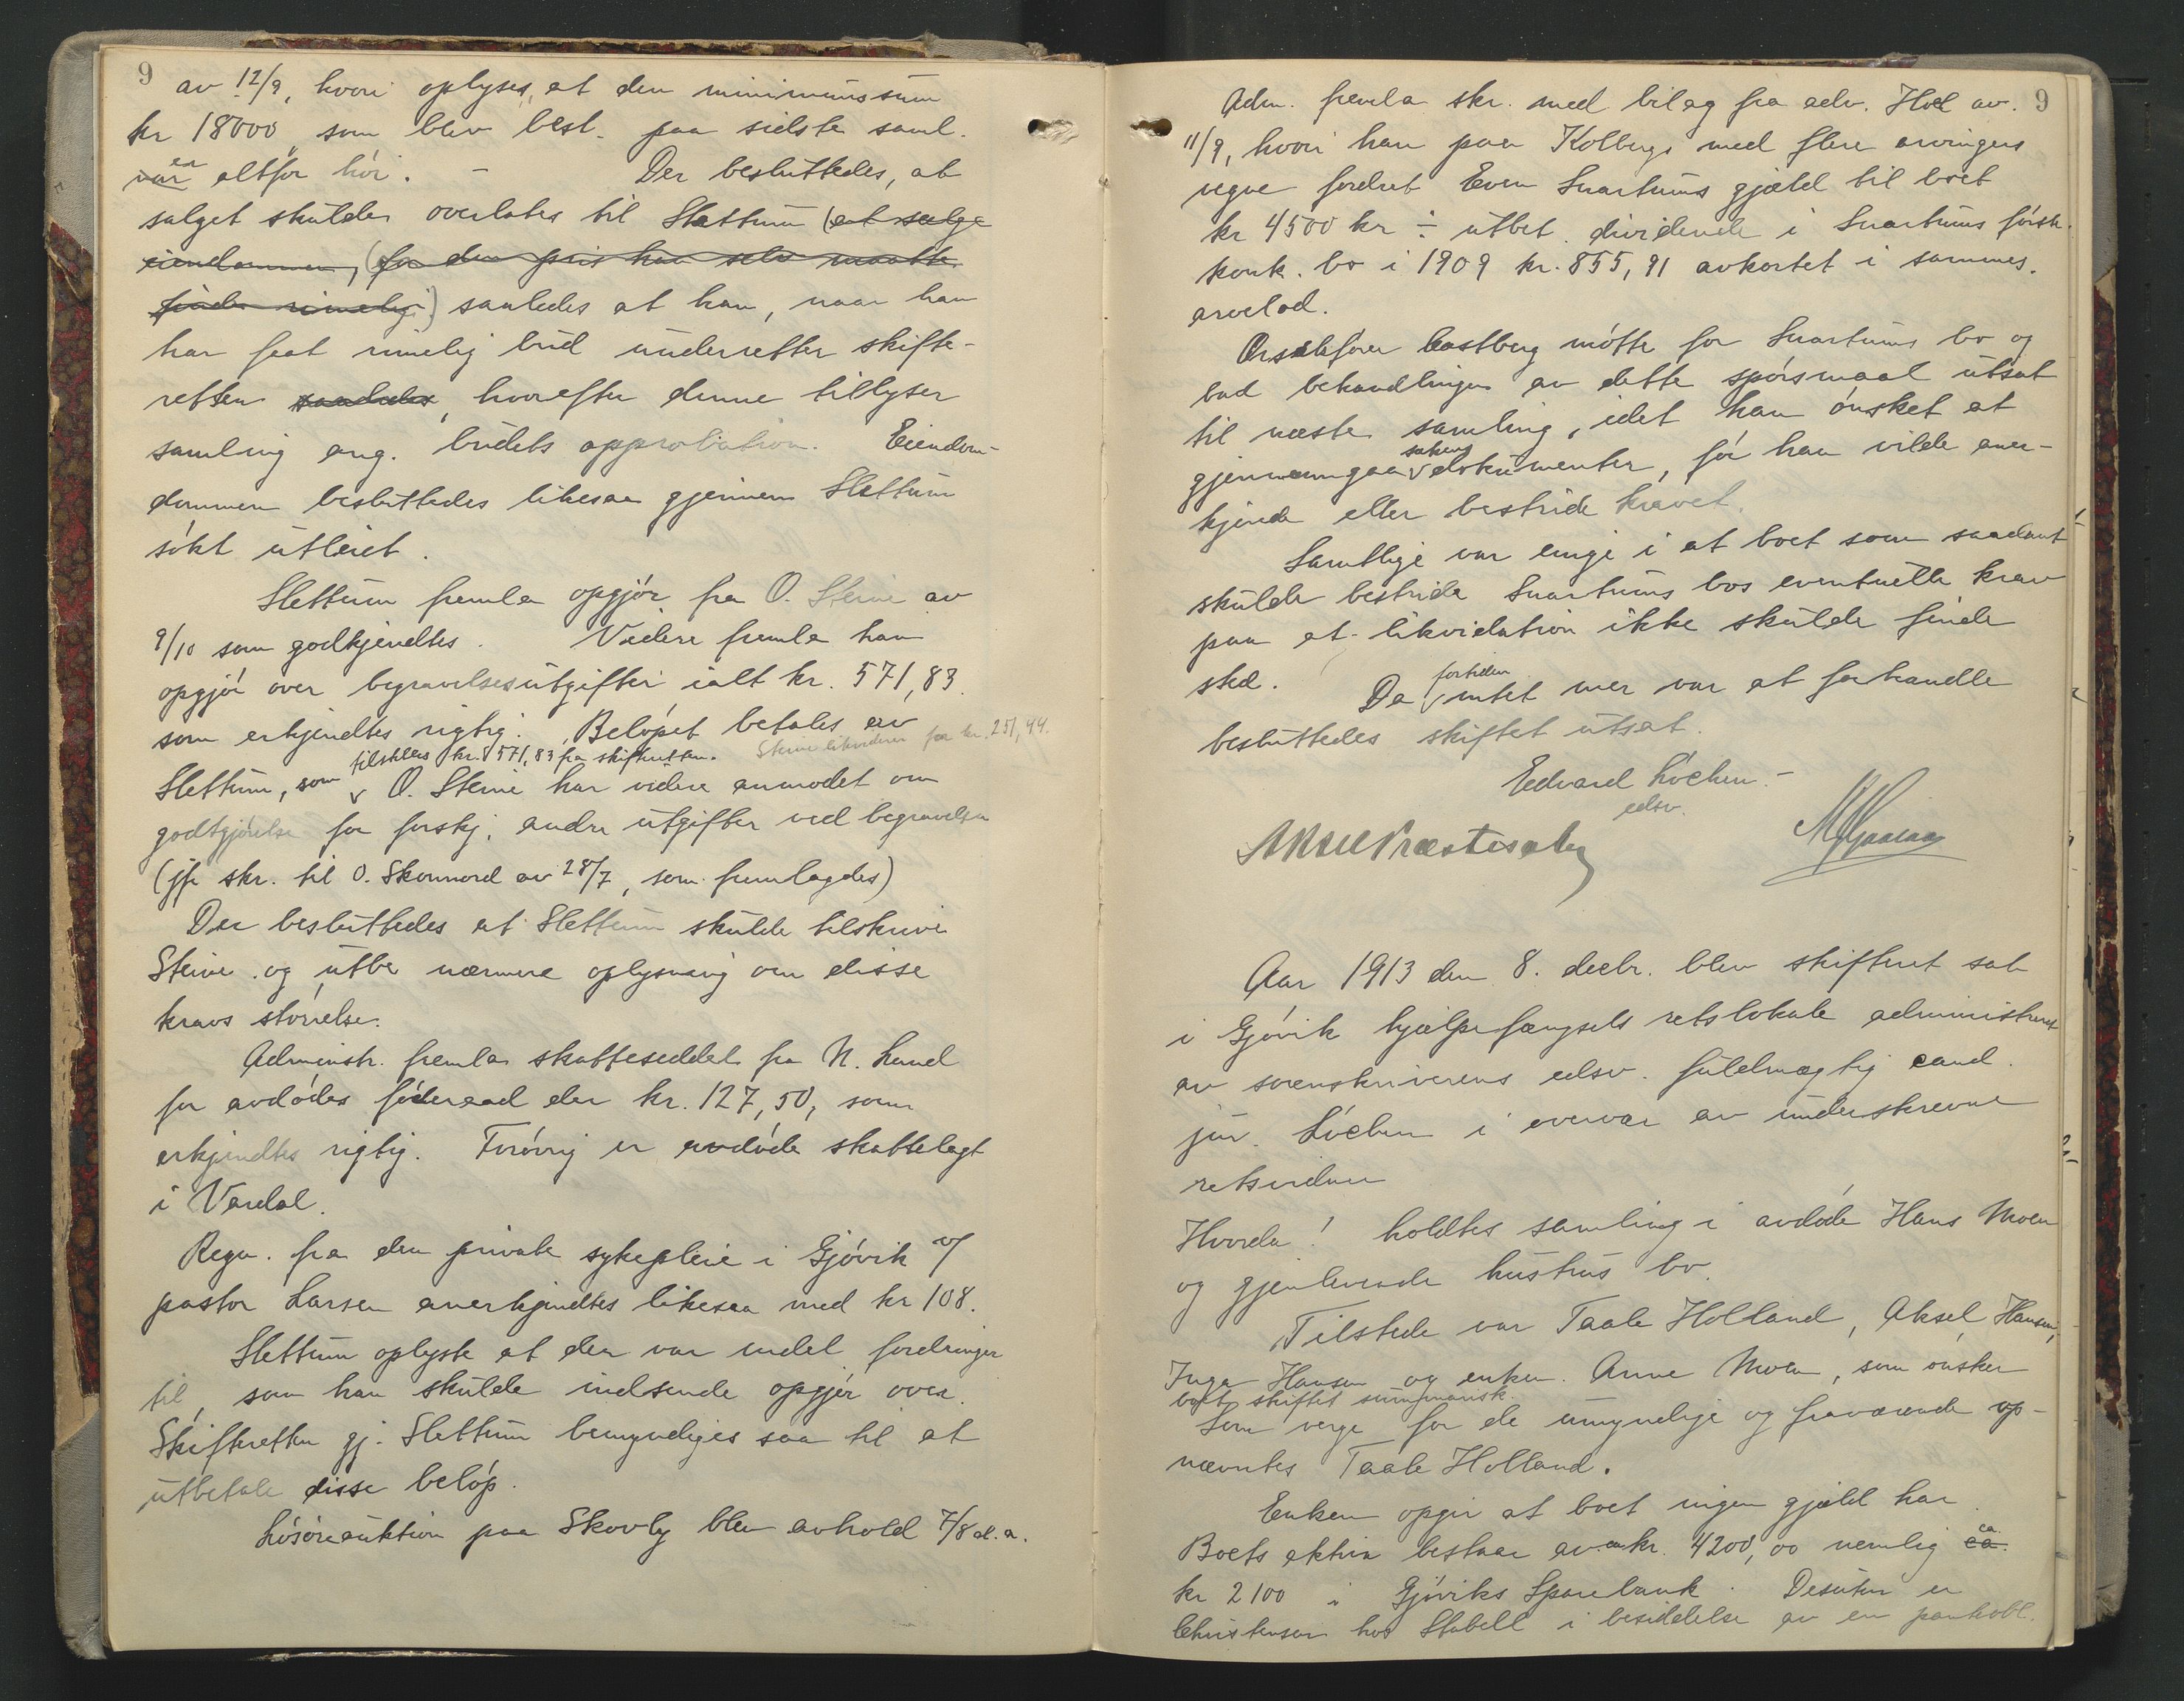 9
av 12/9, hvori oplyses, at den minimumssum
kr 18000, som blev best. paa sidste saml.
er
var altfor høi. – Der besluttedes, at
salget skulde overlates til Slettum (at sælge
eiendommen, (for den pris han selv maatte
finde rimelig) saaledes at han, naar han
har faat rimelig bud underretter skifte-
retten saaledes, hvorefter denne tillyser
samling ang. budets approbation. Eiendom-
dommen besluttedes likesaa gjennem Slettum
søkt utleiet.
Slettum fremla opgjør fra O. Steine av
9/10 som godkjendtes. Videre fremla han
opgjør over begravelsesutgifter ialt kr. 571,83
som erkjendtes rigtig. Beløpet betales av
tilstilles kr. 571,83 fra skifteretten. Steine likviderer for kr. 251,44.
Slettum, som O. Steine har videre anmodet om
godtgjørelse for forskj. andre utgifter ved begravelsen
(jfr skr. til O. Skonnord av 28/7, som fremlagdes)
Der besluttedes at Slettum skulde tilskrive
Steine og utbe nærmere oplysning om disse
kravs størrelse.
Adminstr. fremla skatteseddel fra N. Land
for avdødes føderaad der kr. 127,50, som
erkjendtes rigtig. Forøvrig er avdøde skattelagt
i Vardal.
Regn. fra den private sykepleie i Gjøvik v/
pastor Larsen anerkjendtes likesaa med kr 108.
Slettum oplyste at der var endel fordringer
til, som han skulde indsende opgjør over.
Skifteretten gj. Slettum bemyndiges saa til at
utbetale disse beløp.
Løsøreauktion paa Skovly blev avholdt 7/8 d.a.
9
Adm. fremla skr. med bilag fra adv. Hoel av
11/9, hvori han paa Kolbergs med flere arvingers
vegne fordret Even Svartums gjæld til boet
kr 4500 kr ÷ utbet. dividende i Svartums først.
konk. bo i 1909 kr. 855,91 avkortet i sammes
arvelod.
Overretssakfører Castberg møtte for Svartums bo og
bad behandlingen av dette spørsmaal utsat
til næste samling, idet han ønsket at
sakens
gjennemgaa dokumenter, før han vilde aner-
kjende eller bestride kravet.
Samtlige var enige i at boet som saadant
skulde bestride Svartums bos eventuelle krav
paa at likvidation ikke skulde finde
sted.
fortiden
Da intet mer var at forhandle
besluttedes skiftet utsat.
Edvard Løchen
edsv.
Aksel Præstesæter
Aar 1913 den 8. decbr. blev skifteret sat
i Gjøvik hjælpefængsels retslokale administreret
av sorenskriverens edsv. fuldmægtig cand.
jur. Løchen i overvær av underskrevne
retsvidner
Hvorda! holdtes samling i avdøde Hans Moen
og gjenlevende hustrus bo.
Tilstede var Taale Holland, Aksel Hansen,
Inga Hansen og enken Anne Moen, som ønsker
boet skiftet summarisk.
Som verge for de umyndige og fraværende op-
nævntes Taale Holland.
Enken opgir at boet ingen gjæld har.
ca.
Boets aktiva bestaar av kr. 4200,00 nemlig ca.
kr 2100 i Gjøviks Sparebank. Desuten er
Christensen hos Stabell i besiddelse av en pantobl.